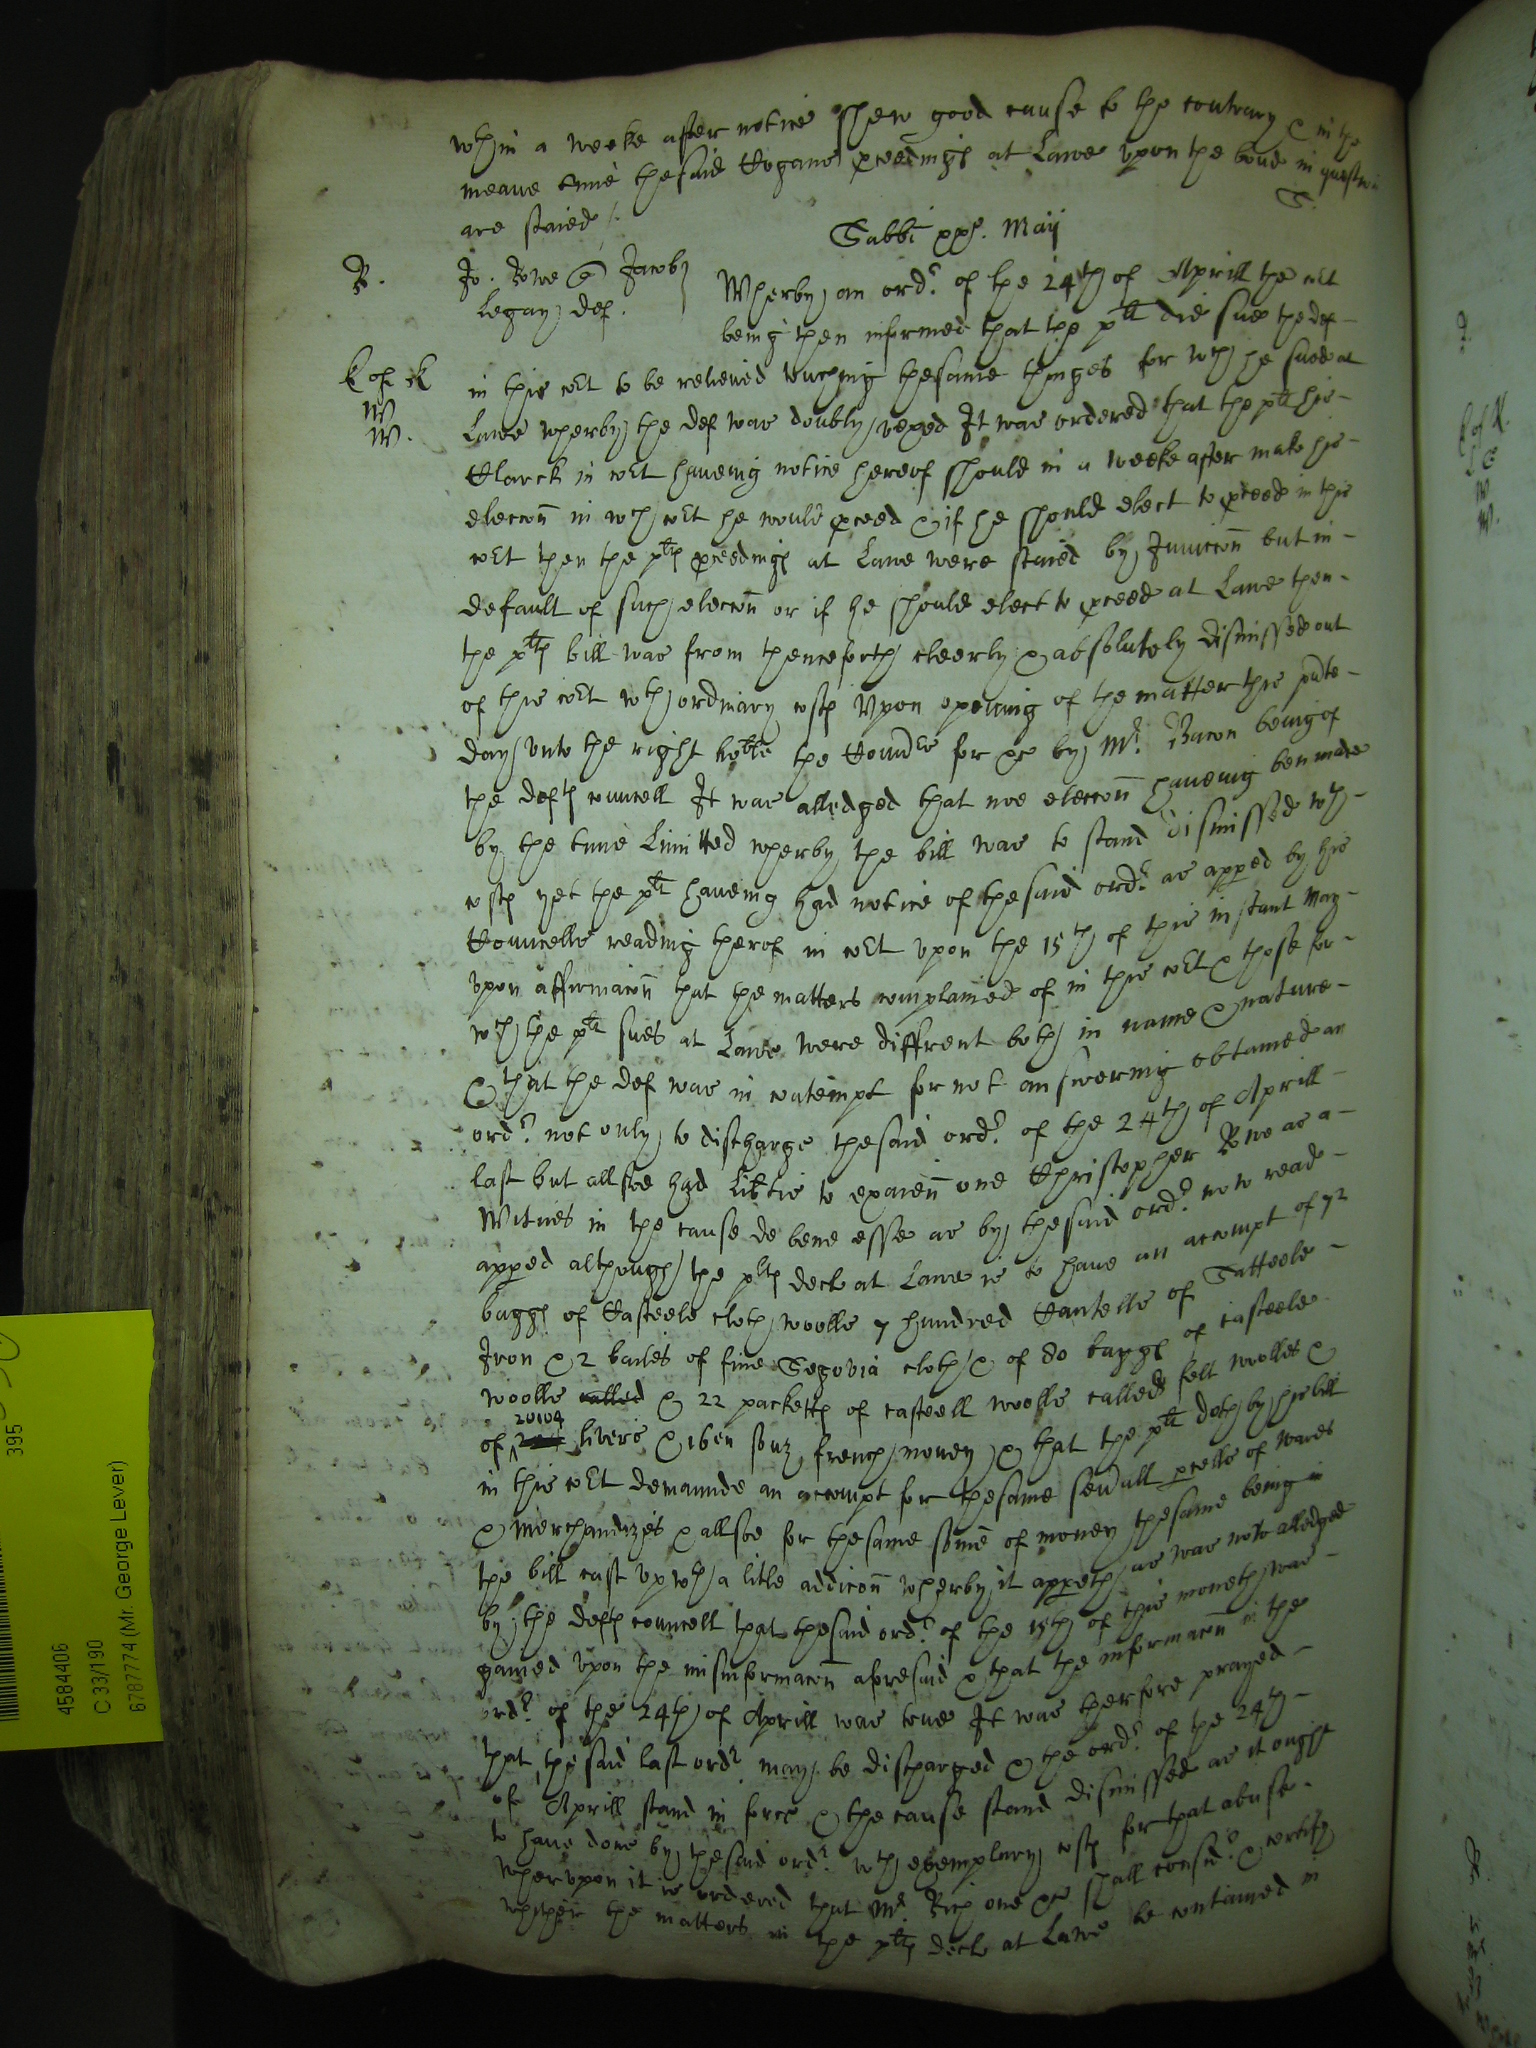 wthin a weeke after notice shew good cause to the contrary & in the
meane time the said Hogans pceedings at Lawe upon the bond in question
are staied /.
S.
Sabbi xxx. Maij
R. Jo: Rowe Jacoby
Legay def.
Wherby an ordr. of the 24th of Aprill the cort
being then informed that the plt did sue the def
in this cort to be releived touching the same thinges for wch he sued at
W
W.
Lawe wherby the def was doubly vexed It was ordered that the plt his
Clarck in cort haveing notice hereof should in a weeke after make his
eleccon in wch cort he would pceed & if he should elect to pceed in this
cort then the plts pceedings at Lawe were staied by Iniuccon but in
default of such eleccon or if he should elect to pceed at Lawe then
the plts bill was from thenceforth cleerly & absolutely dismissed out
of this cort wth ordinary costs Upon opening of the matter this pnte
day unto the right hoble the for &c by Mr. Bacon being of
the defts councell It was alledged that noe eleccon haveing ben made
by the time Limitted wherby the bill was to stand dismissed wth
costs yet the plt haveing had notice of the said ordr. as apped by his
Councells reading therof in cort upon the 15th of this instant May
upon affirmacon that the matters complained of in this cort & those for
wch the plt sues at Lawe were diffrent both in name & nature
& that the def was in contempt for not answering obtained an
ordr. not only to discharge the said ordr. of the 24th of Aprill
last but allsoe had libtie to examen one Christopher Rowe as a
Witnes in the cause de bene esse as by the said ordr. now read
apped although the plts decl at Lawe is to have an accompt of 72
baggs of Casteele cloth woolls 7 hundred Cantells of
Iron & 2 bailes of fine Segovia cloth & of 80 baggs of casteele
woolle called & 22 packetts of casteell woolle called felt woolles &
of 20104 livers & 16en souz french money & that the plt doth by his bill
in this cort demaunde an accompt for the same sevall pcells of wares
& merchandizes & allsoe for the same some of money the same being in
the bill cast up wth a litle addicon wherby it appeth as was now alledged
by the defts councell that the said ordr. of the 15th of this moneth was
gained upon the misinformacon aforesaid & that the informacon in the
ordr. of the 24th of Aprill was true It was therfore prayed
that the said last ordr may be discharged & the ordr. of the 24th
of Aprill stand in force & the cause stand dismissed as it ought
to have done by the said ordr. wth exemplary costs for that abuse.
wherupon it is ordered that Mr. Rich one &c shall consid & certify
whither the matters in the plts decl at Lawe be contained in
395
4584406
C 33/190
6787774 (Mr. George Lever)
W.